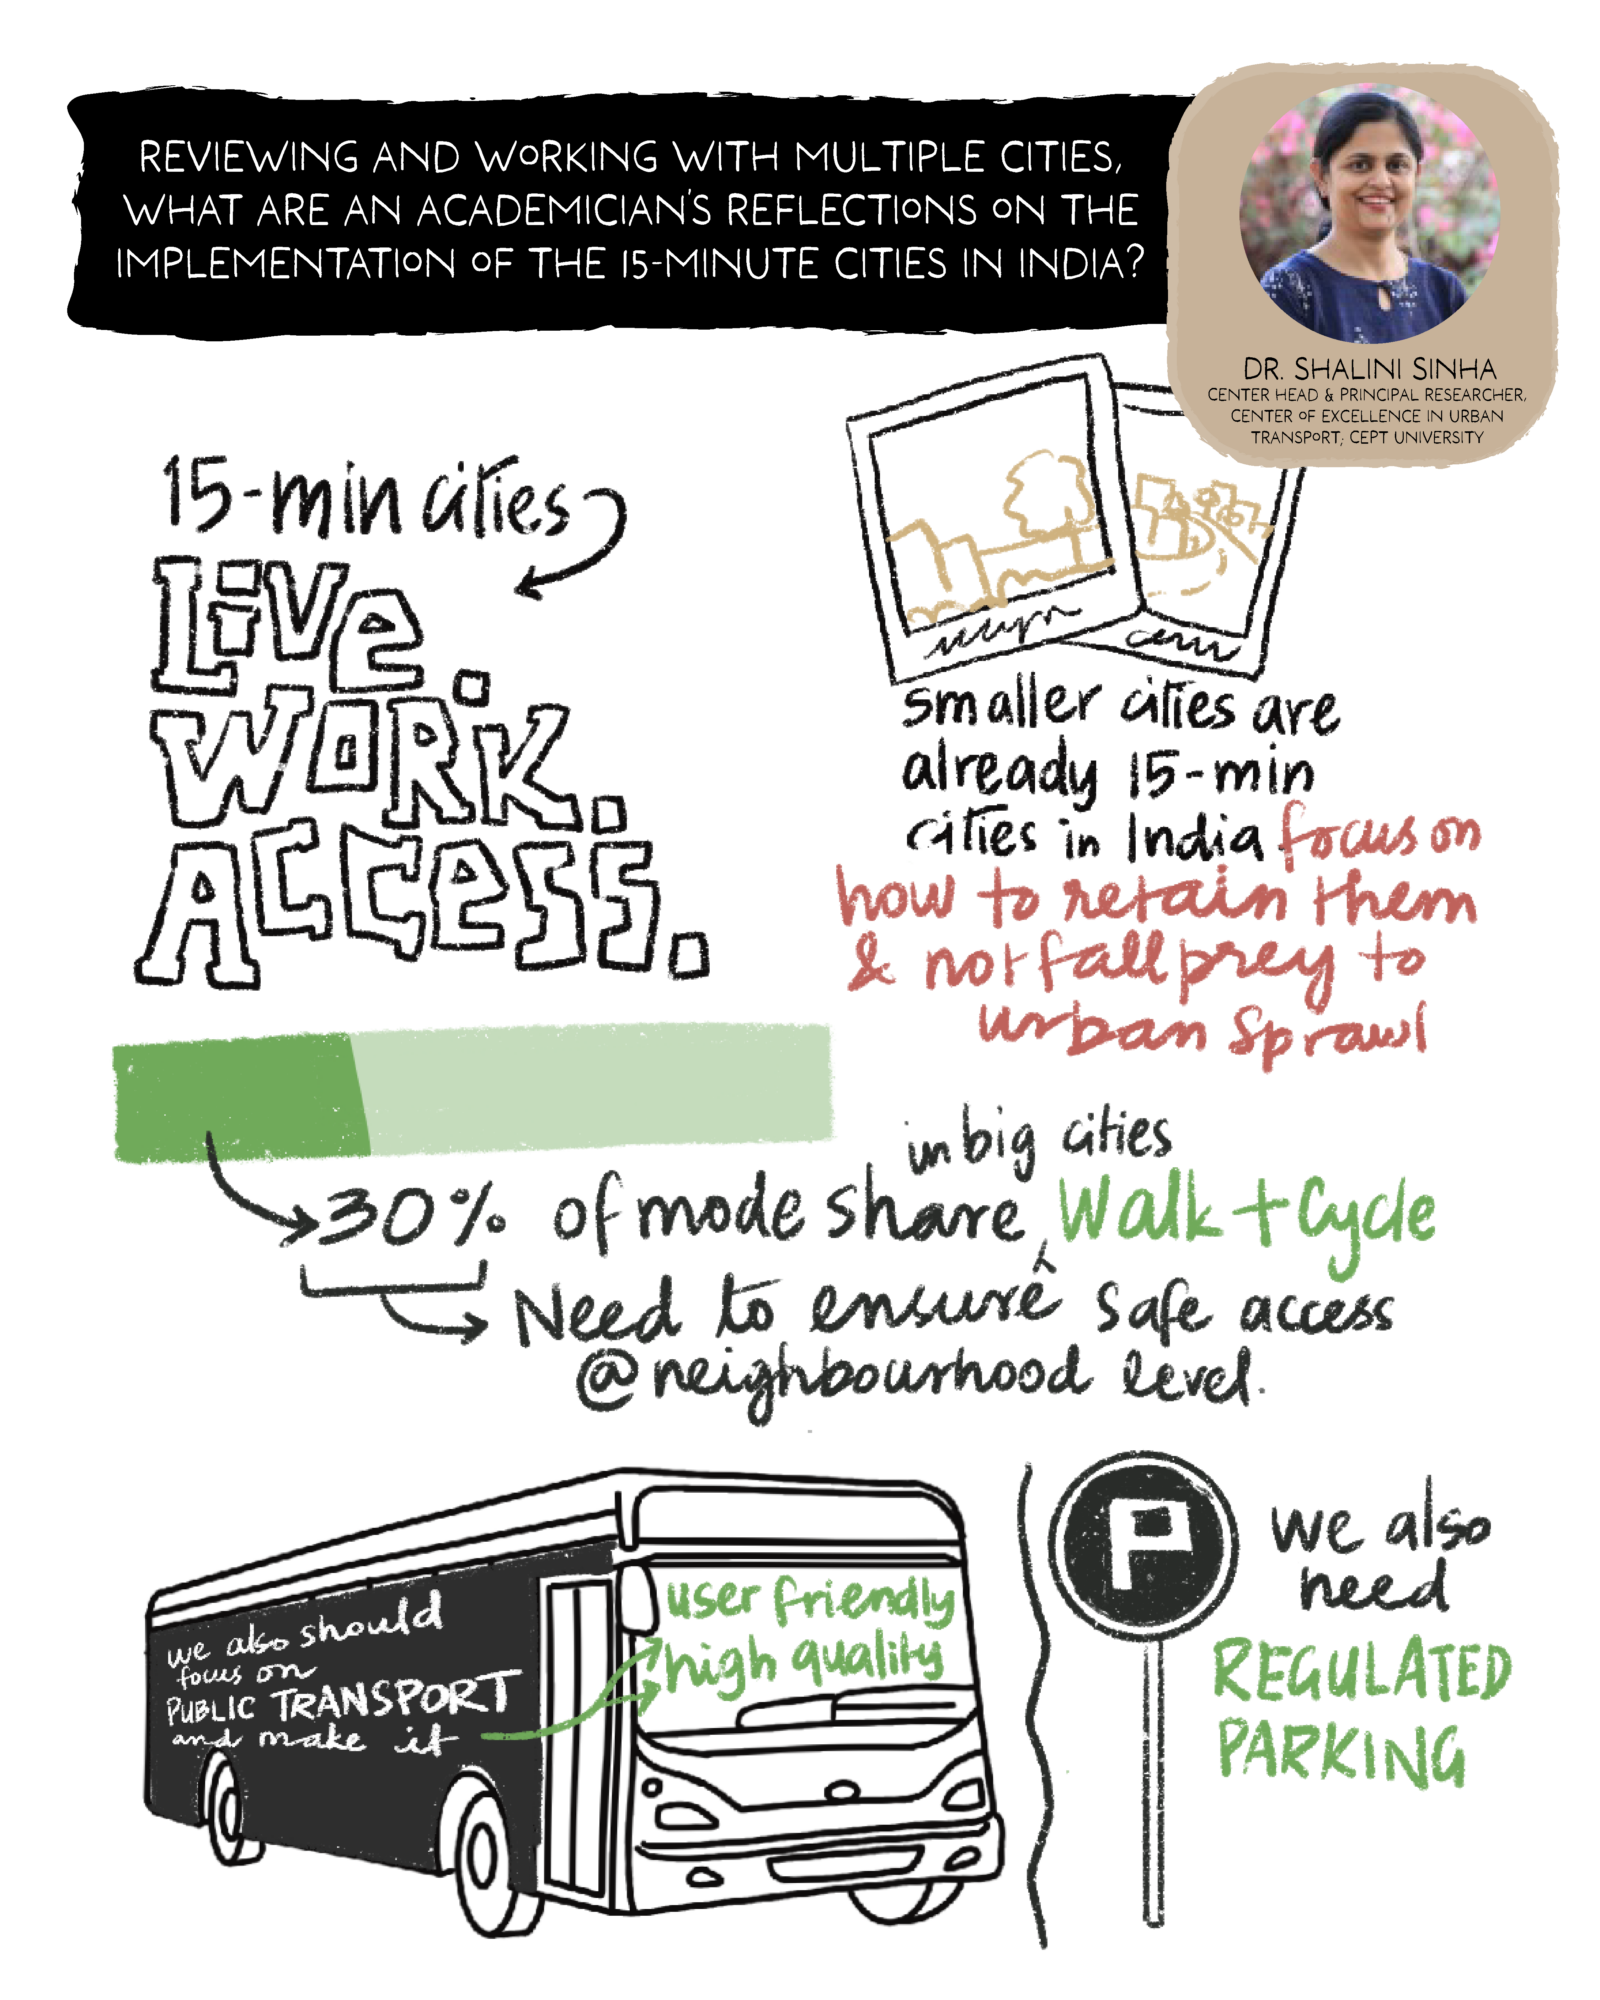 REVIEWING AND WORKING WITH MULTIPLE CITIES,
WHAT ARE AN ACADEMICIAN'S REFLECTIONS ON THE
IMPLEMENTATION OF THE 15-MINUTE CITIES IN INDIA?
DR. SHALINI SINHA
CENTER HEAD & PRINCIPAL RESEARCHER,
CENTER OF EXCELLENCE IN URBAN
TRANSPORT; CEPT UNIVERSITY
15-min cities
Live.
Work.
Access.
smaller cities are
already 15-min
cities in India focus on
how to retain them
& not fall prey to
urban sprawl
in big cities
30% of mode share Walk + Cycle
Need to ensure safe access
@ neighbourhood level.
we also should
focus on
PUBLIC TRANSPORT
and make it
user friendly
high quality
P
we also
need
REGULATED
PARKING